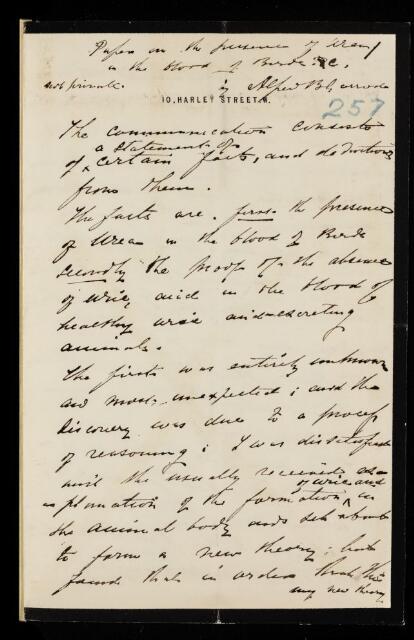 Paper on the presence of Urea
in the blood of Birds &c.
not private. by Alfred B. Garrod
10, HARLEY STREET, W.
257
The communication consists
of a statement of certain facts, and deductions
from them.
The facts are. first the presence
of Urea in the blood of Birds
secondly the proof of the absence
of uric acid in the blood of
healthy uric acid excreting
animals.
The first was entirely unknown
and most unexpected; and the
discovery was due to a process
of reasoning; I was dissatisfied
with the usually received ex-
planation of the formation of uric acid in
the animal body and set about
to form a new theory; but
found that in order that the
my new theory